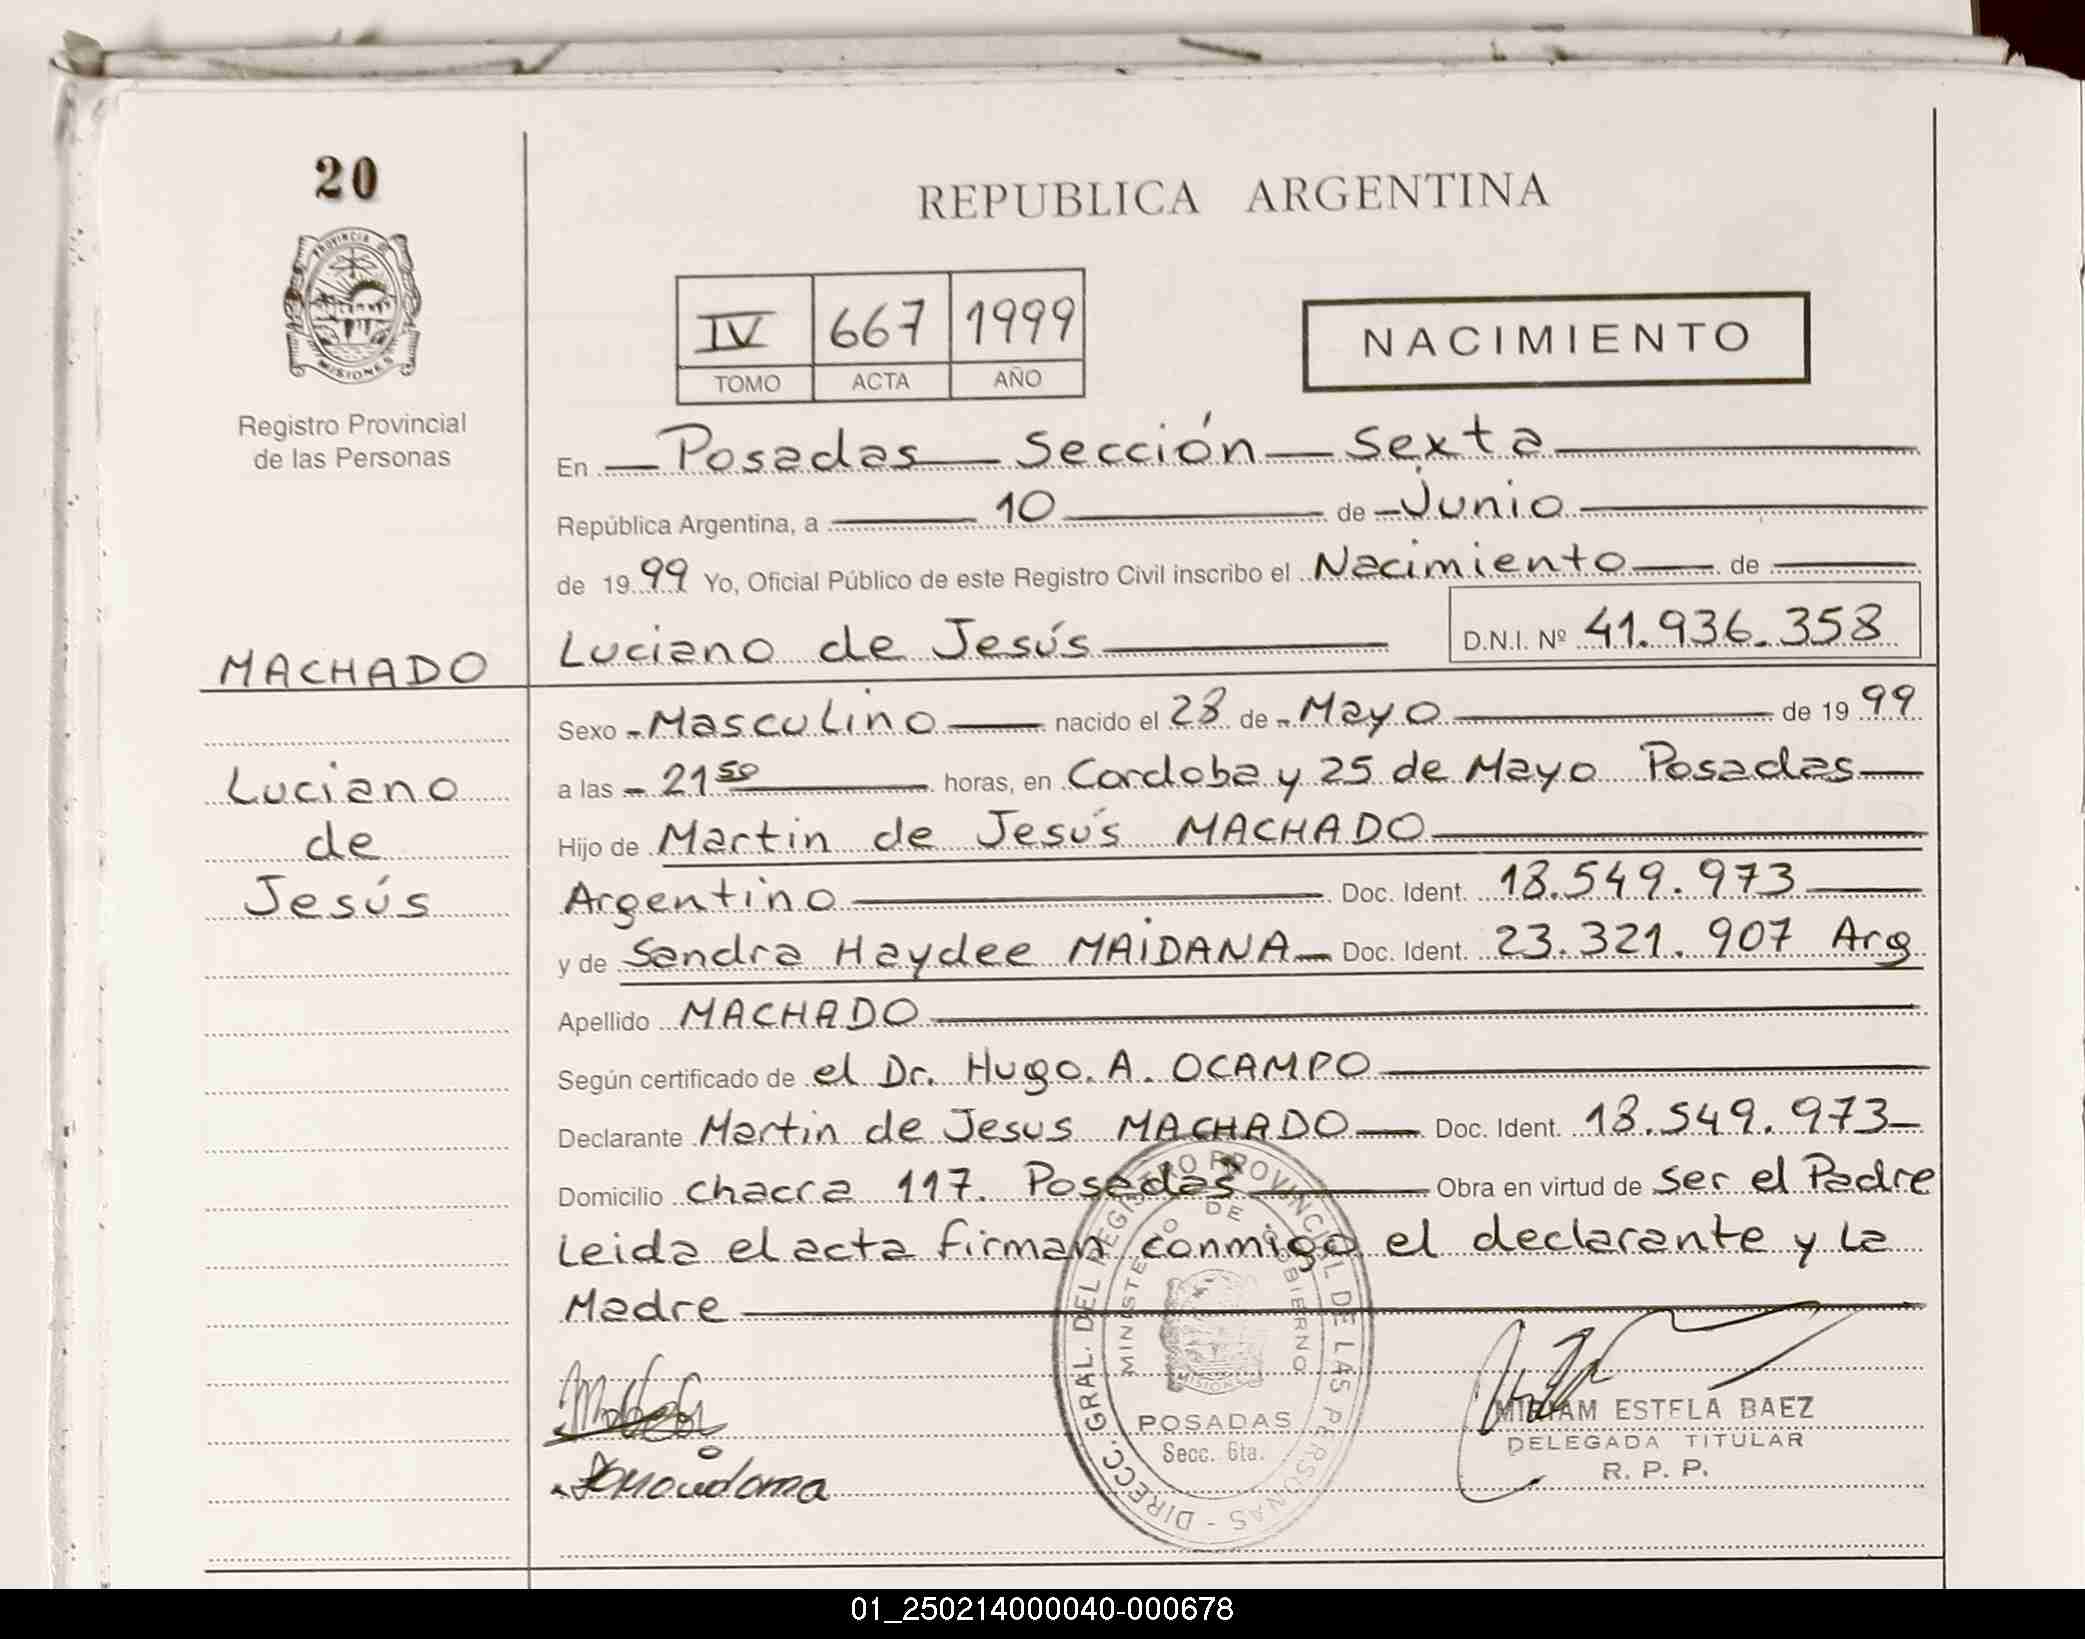 20
PROVINCIA DE
MISIONES
Registro Provincial
de las Personas
MACHADO
Luciano
de
Jesús
REPUBLICA ARGENTINA
IV 667 1999
TOMO ACTA AÑO
NACIMIENTO
En Posadas Sección Sexta
República Argentina, a 10 de Junio
de 1999 Yo, Oficial Público de este Registro Civil inscribo el Nacimiento de
Luciano de Jesús D.N.I. Nº 41.936.358
Sexo Masculino nacido el 28 de Mayo de 1999
a las 21 50 horas, en Cordoba y 25 de Mayo Posadas
Hijo de Martin de Jesús MACHADO
Argentino Doc. Ident. 18.549.973
y de Sandra Haydee MAIDANA Doc. Ident. 23.321.907 Arg
Apellido MACHADO
Según certificado de el Dr. Hugo. A. OCAMPO
Declarante Martin de Jesus MACHADO Doc. Ident. 18.549.973
Domicilio chacra 117. Posadas Obra en virtud de ser el Padre
Leida el acta firman conmigo el declarante y la
Madre
DIRECC. GRAL. DEL REGISTRO PROVINCIAL DE LAS PERSONAS -
MINISTERIO DE GOBIERNO
MISIONES
POSADAS
Secc. 6ta.
MIRIAM ESTELA BAEZ
DELEGADA TITULAR
R. P. P.
01_250214000040-000678